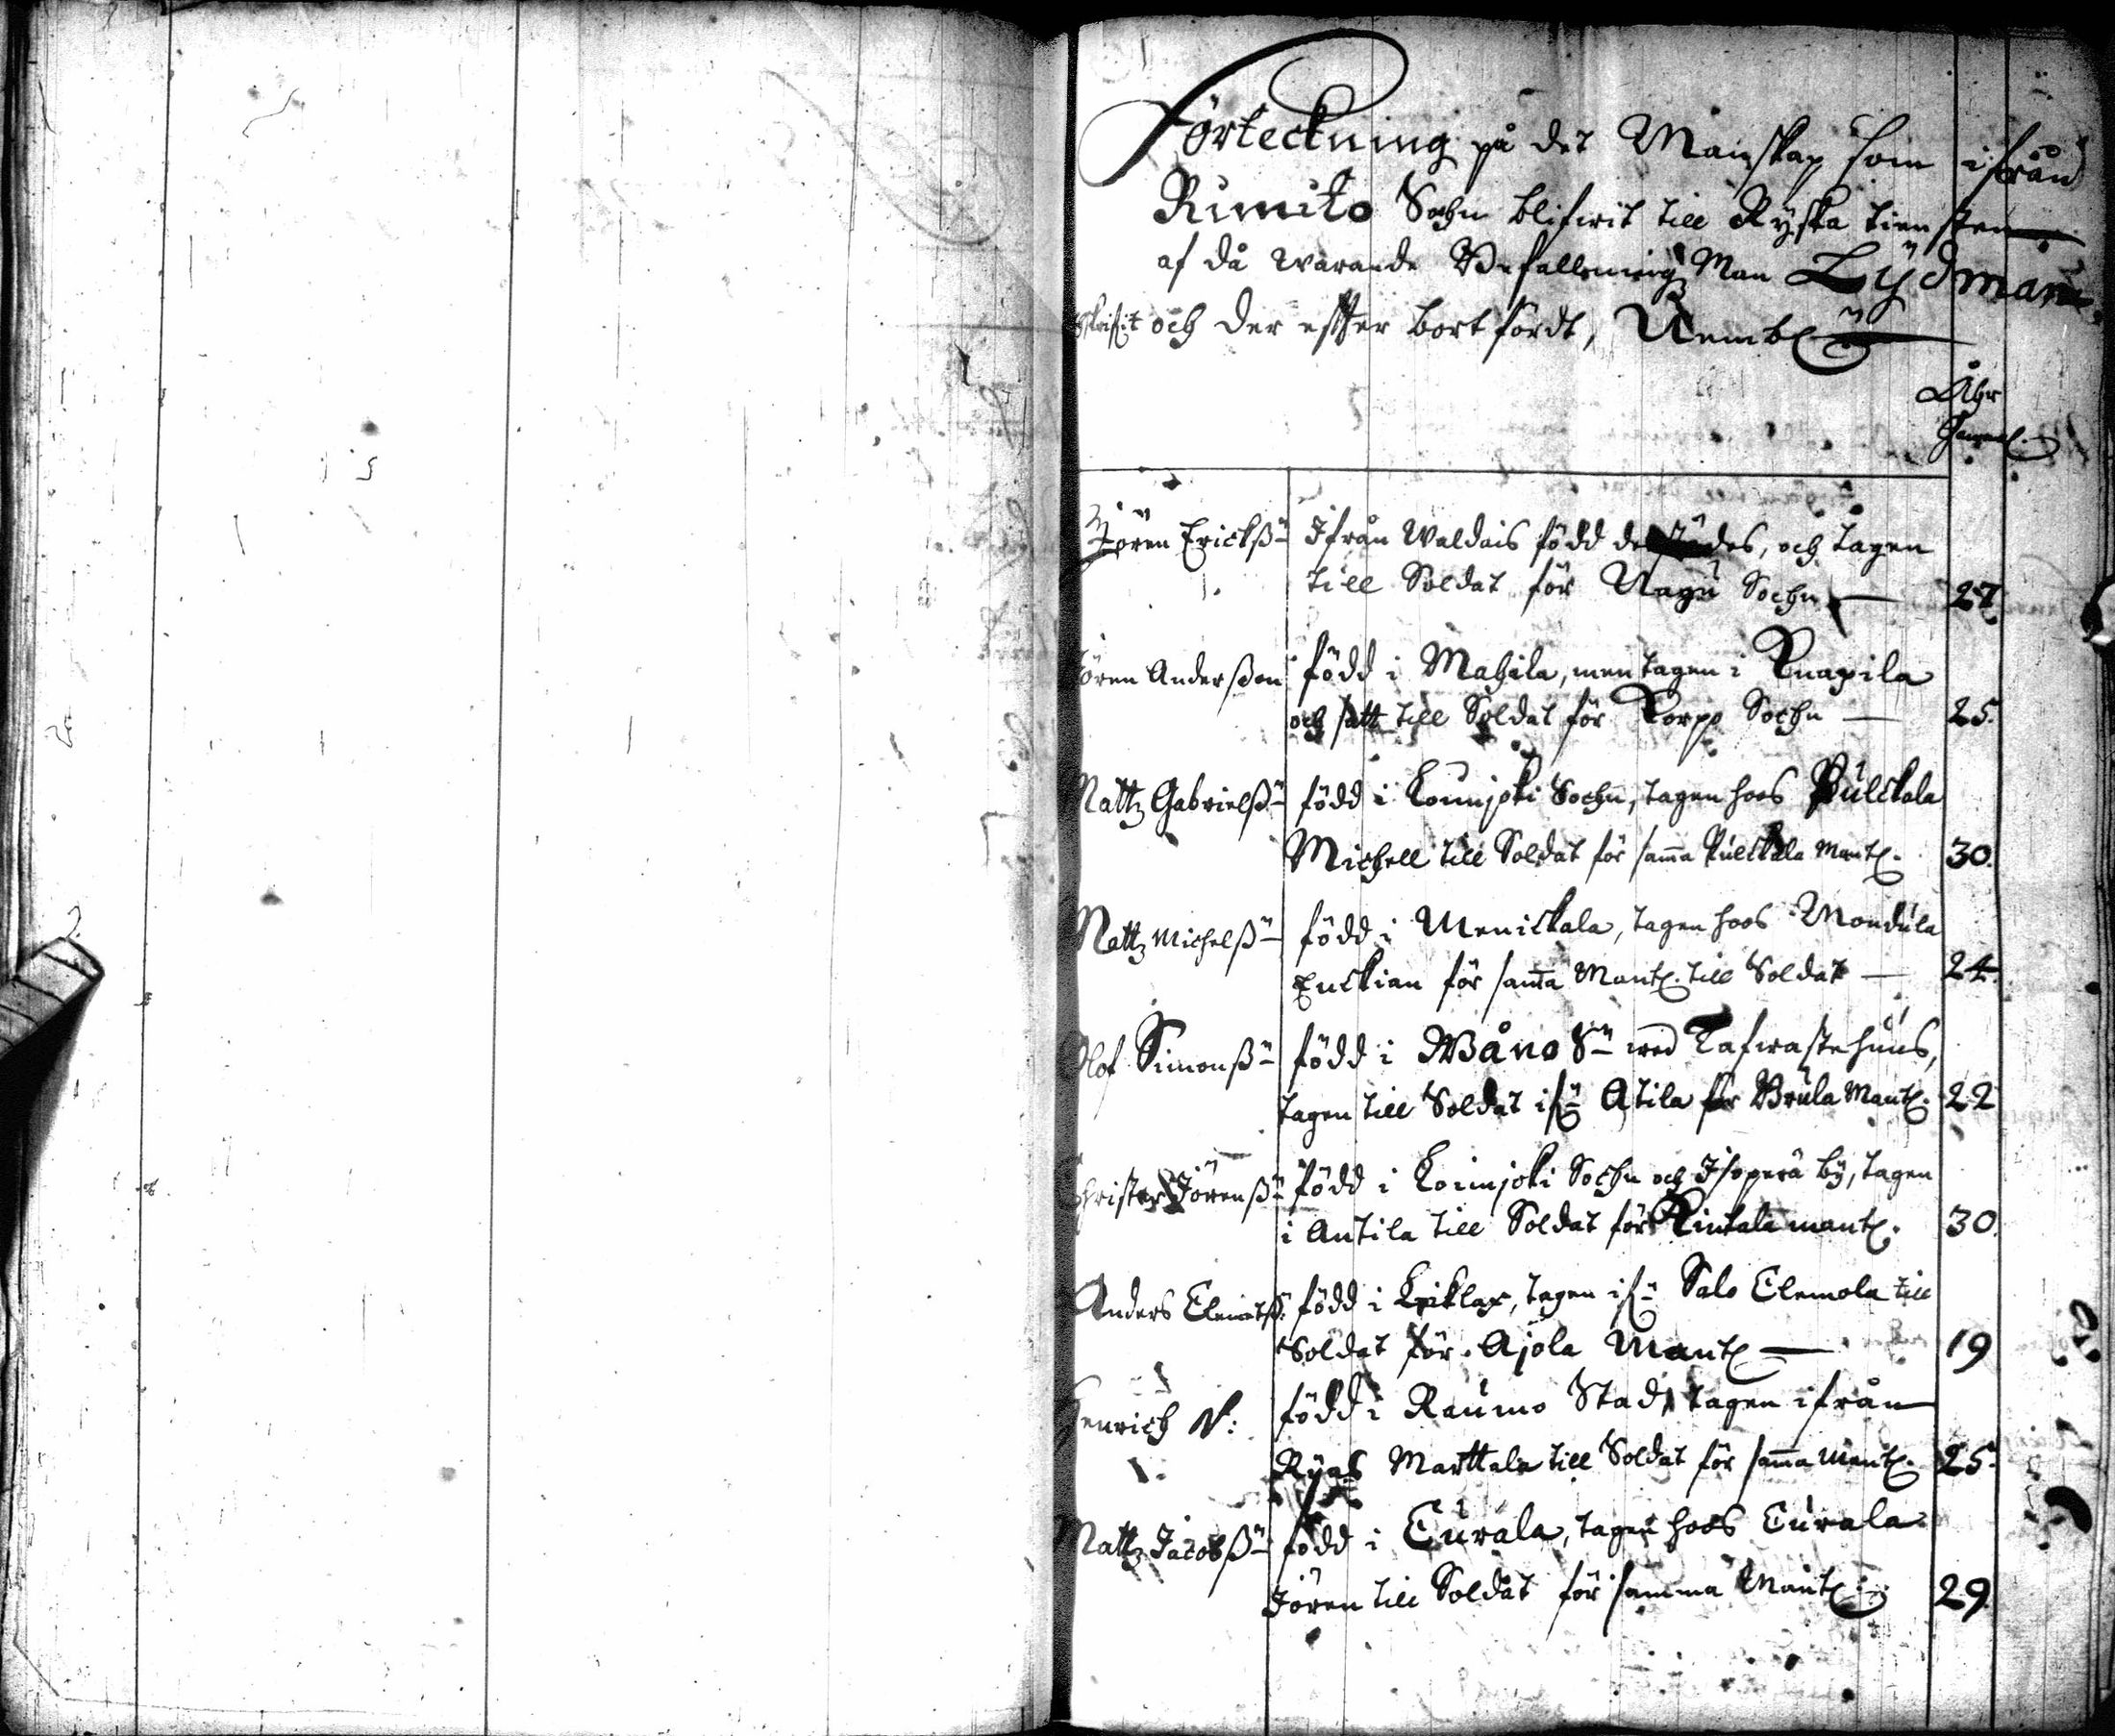 Förteckning på det Manskap som ifrån
Rimito Sochn blifwit till Ryska tiensten
af då warande Befallnings Man Lydman
skrifit och der effter bort fördt, Nembl:
Åhr
Gammal.
Jören Erickß: Ifrån Waldais född derstädes, och tagen
till Soldat för Nagu Sochn — 27
Jören Anderßon född i Mahila, men tagen i Knapila
och satt till Soldat för Korpo Sochn — 25.
Mattz Gabrielß: född i Loimjoki Sochn, tagen hoos Pulckala
Michell till Soldat för samma Pulckala Mantl. 30.
Mattz Michelß: född i Menickala, tagen hoos Mondula
Enckian för samma Mantl. till Soldat — 24.
Olof Simonß: född i Wåno Sn wed Tafwastehuus,
tagen till Soldat ifn Atila för Brula Mantl. 22
Christer Jörenß: född i Loimjoki Sochn och Isoperä by, tagen
i Antila till Soldat för Rintala mantl. 30.
Anders Clemetß: född i Laiklax, tagen ifn Salo Clemola till
Soldat för Ajola Mantl — 19
Henrich N: född i Raumo Stad, tagen ifrån
Ryas Marttala till Soldat för samma mantl. 25.
Mattz Jacobß: född i Eurala, tagen hoos Eurala
Jören till Soldat för samma Mantl. 29.